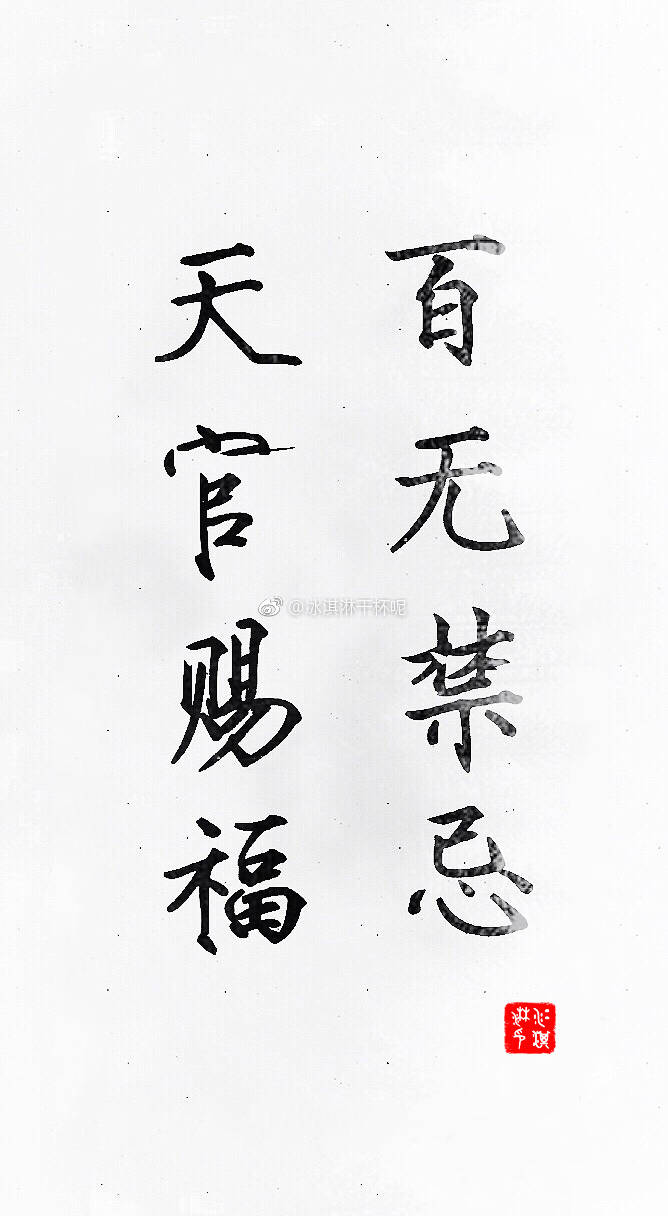 百无禁忌
天官赐福
@冰琪淋干杯呢